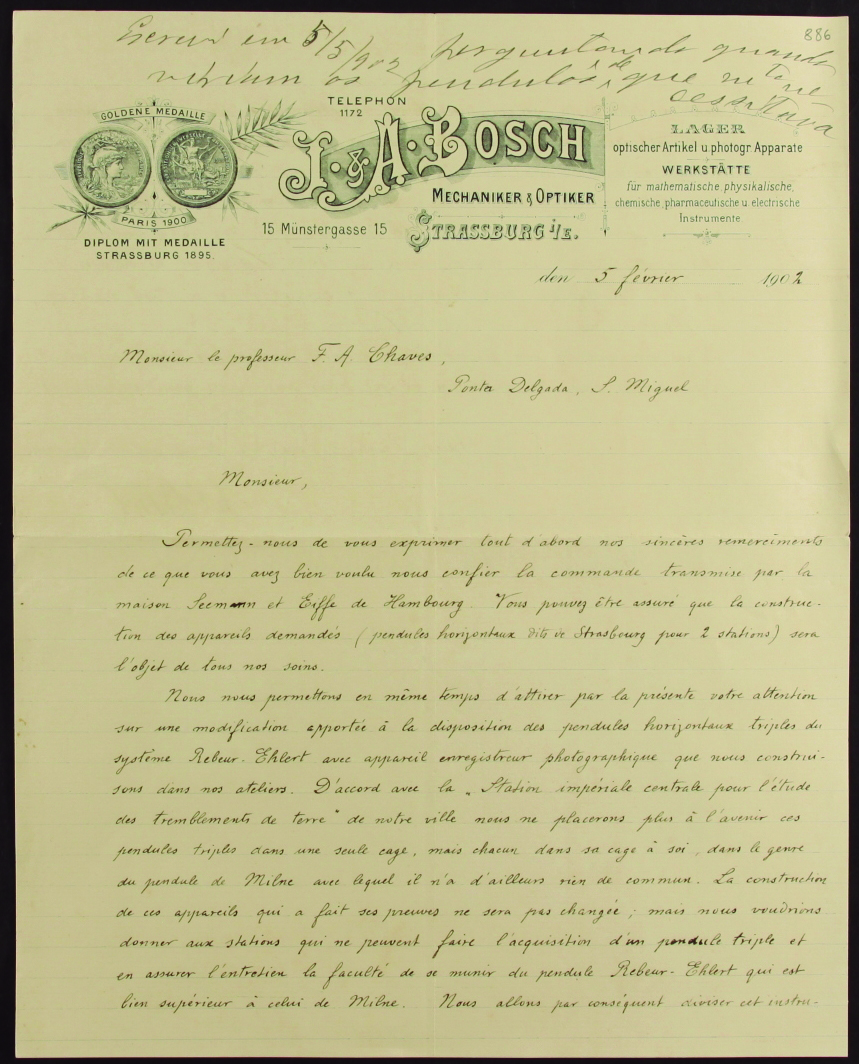 886
Escrevi em 5/5/902 perguntando quando
os pendulos de que
TELEPHON
1172
GOLDENE MEDAILLE
PARIS 1900
DIPLOM MIT MEDAILLE
STRASSBURG 1895.
J. & A. BOSCH
MECHANIKER & OPTIKER
15 Münstergasse 15
STRASSBURG i/E.
LAGER
optischer Artikel u. photogr. Apparate
WERKSTÄTTE
für mathematische, physikalische,
chemische, pharmaceutische u. electrische
Instrumente.
den 5 février 1902
Monsieur le professeur F. A. Chaves,
Ponta Delgada, S. Miguel
Monsieur,
Permettez-nous de vous exprimer tout d'abord nos sincères remerciments
de ce que vous avez bien voulu nous confier la commande transmise par la
maison Seemann et Eiffe de Hambourg. Vous pouvez être assuré que la construc-
tion des appareils demandés (pendules horizontaux dits de Strasbourg pour 2 stations) sera
l'objet de tous nos soins.
Nous nous permettons en même temps d'attirer par la présente votre attention
sur une modification apportée à la disposition des pendules horizontaux triples du
système Rebeur-Ehlert avec appareil enregistreur photographique que nous construi-
sons dans nos ateliers. D'accord avec la „Station impériale centrale pour l'étude
des tremblements de terre" de notre ville nous ne placerons plus à l'avenir ces
pendules triples dans une seule cage, mais chacun dans sa cage à soi, dans le genre
du pendule de Milne avec lequel il n'a d'ailleurs rien de commun. La construction
de ces appareils qui a fait ses preuves ne sera pas changée; mais nous voudrions
donner aux stations qui ne peuvent faire l'acquisition d'un pendule triple et
en assurer l'entretien la faculté de se munir du pendule Rebeur-Ehlert qui est
bien supérieur à celui de Milne. Nous allons par conséquent diviser cet instru-